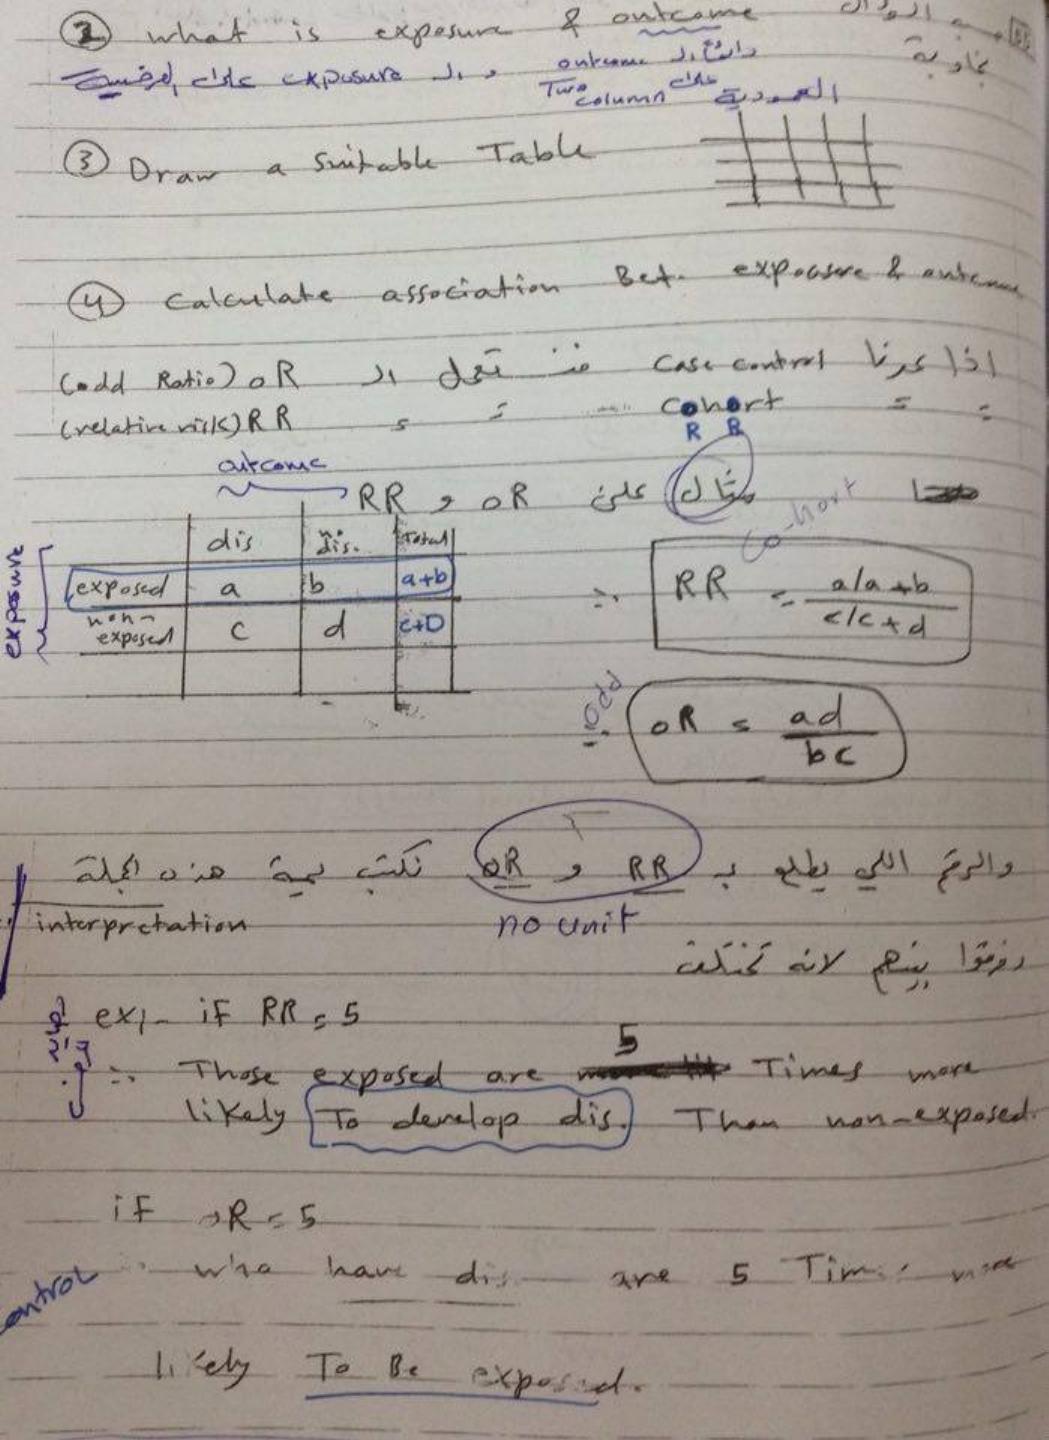 ② what is exposure & outcome
exposure على العرضية
outcome
Two column على العمودية
③ Draw a suitable Table
④ calculate association Bet. exposure & outcome
اذا عرفنا case control الـ OR (odd Ratio)
= = cohort = = RR (relative risk)
R R
outcome
مثال على OR و RR
co-hort
dis dis. Total
exposure
exposed a b a+b
non-exposed c d c+D
∴ RR = a/a+b / c/c+d
odd
∴ OR = ad / bc
والرقم اللي يطلع بـ RR و OR نكتب هذه الجملة
no unit
interpretation
بينهم لانه تختلف
ex,- if RR = 5
∴ Those exposed are 5 Times more
likely To develop dis. Than non-exposed.
if OR = 5
who have dis are 5 Times more
ontrol
likely To Be exposed.